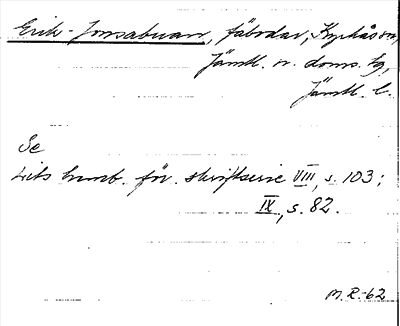 Erik-Jonsabuan, fäbodar, Kyrkås sn,
Jämtl. n. doms. tg,
Jämtl. l.
Se
Lits hemb. för. skriftserie VIII, s. 103;
IX, s. 82.
M.R.-62